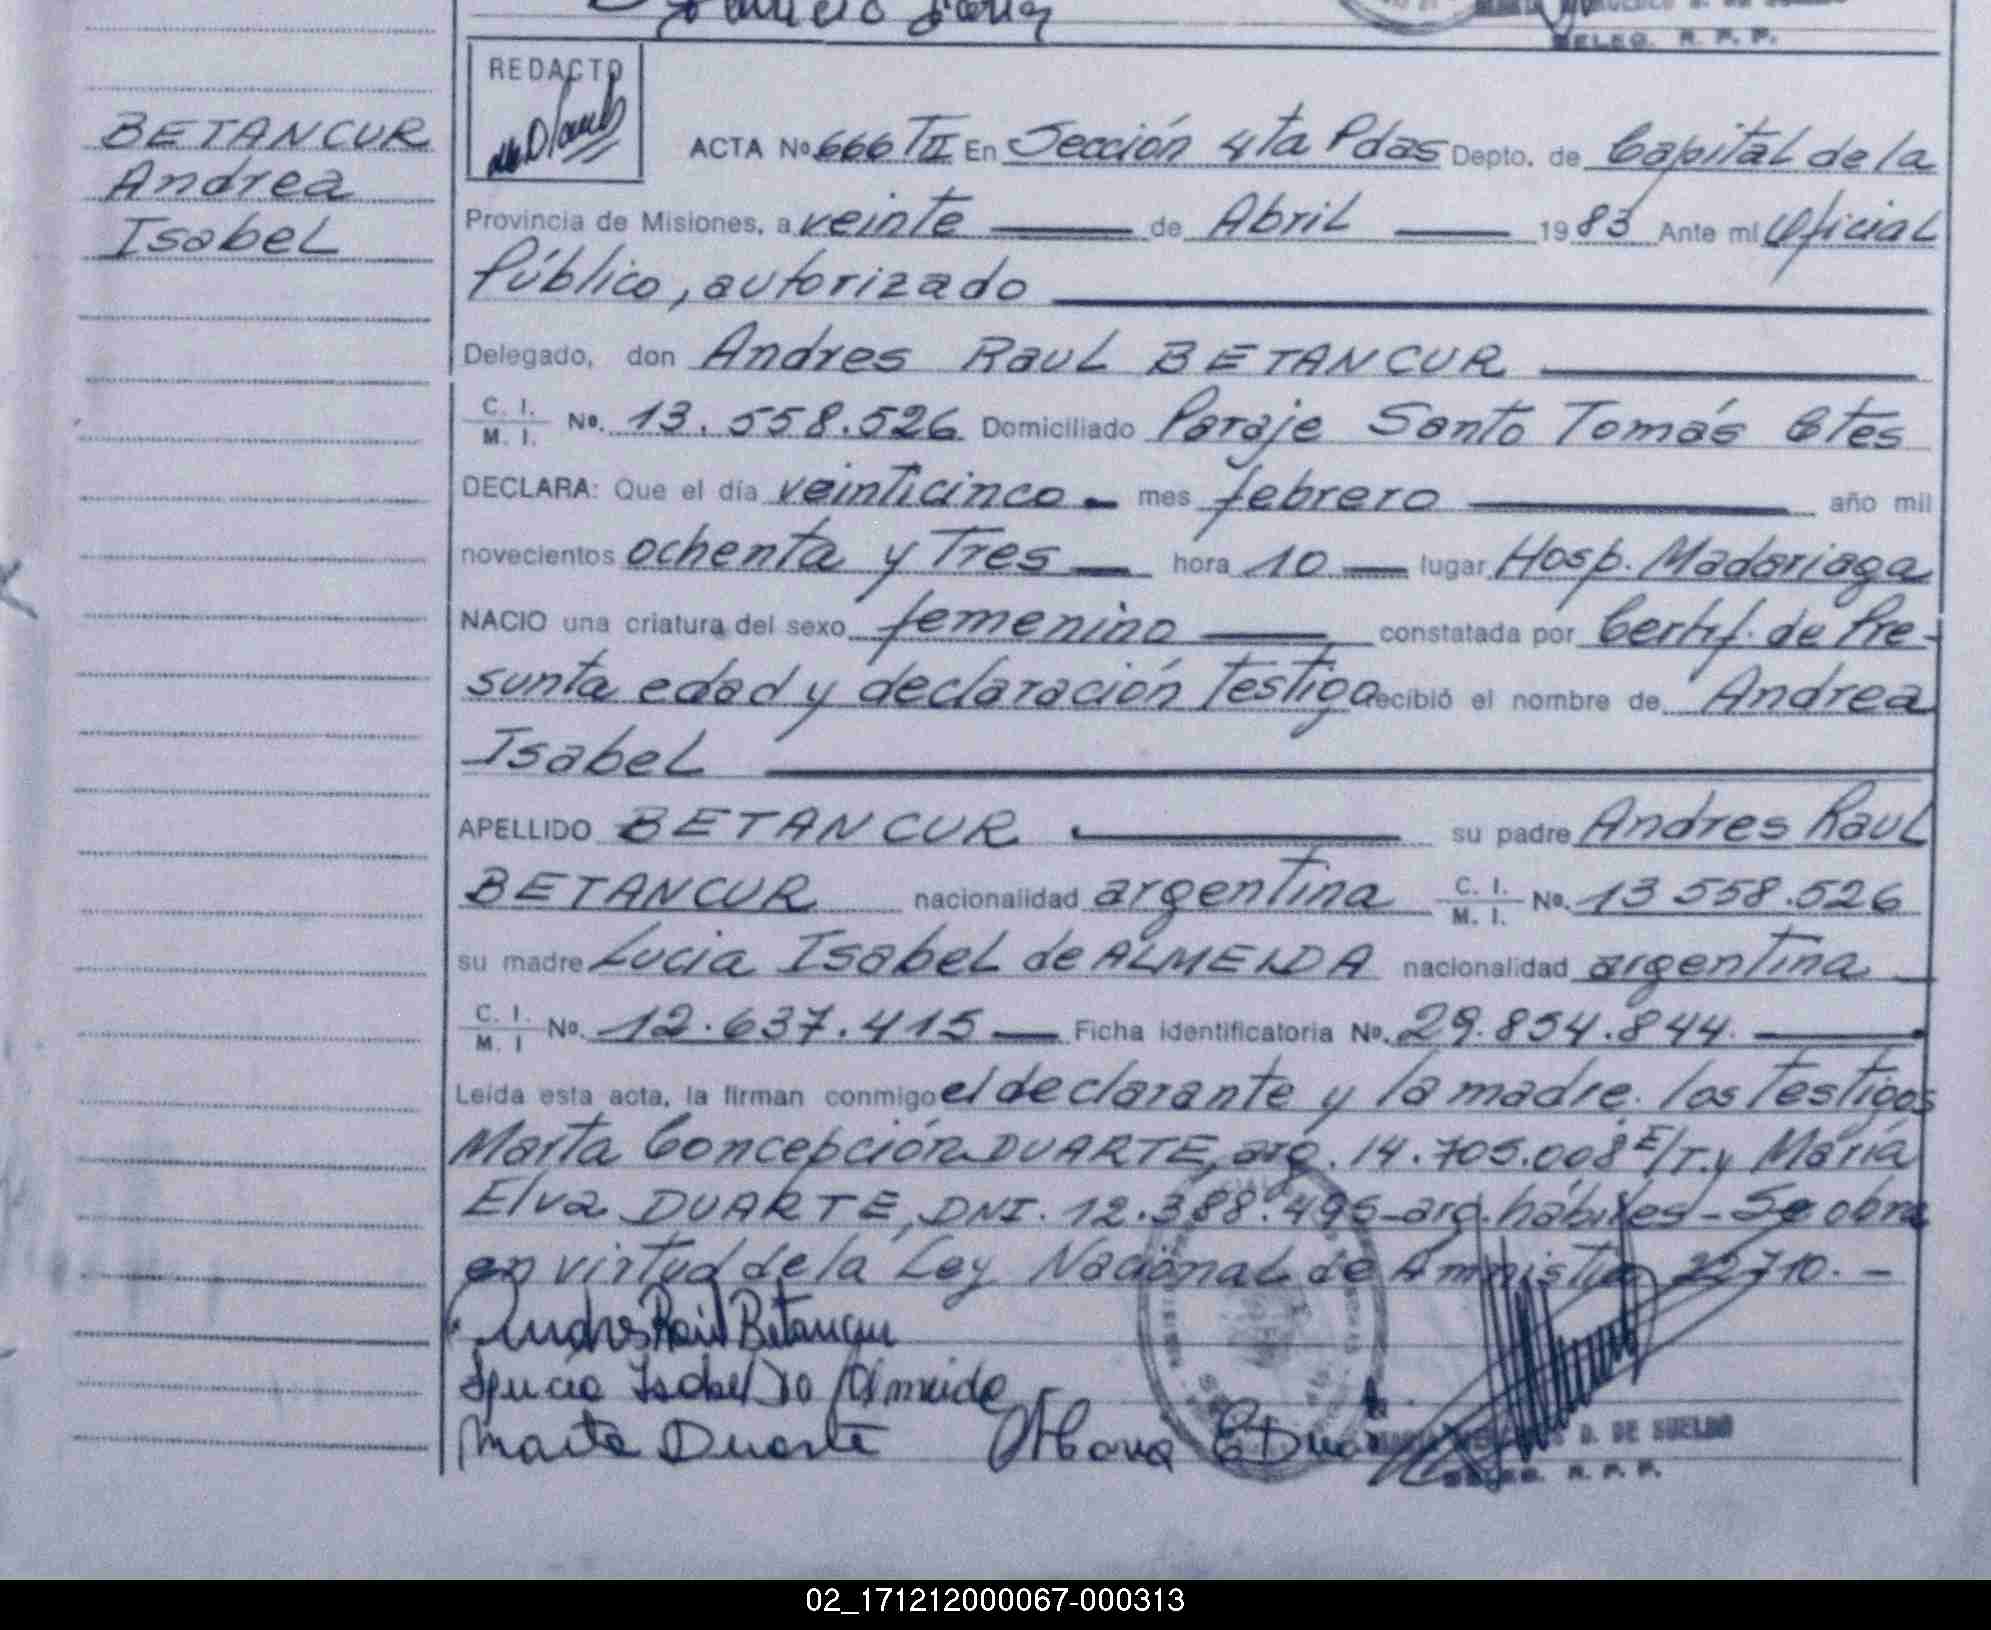 BETANCUR
Andrea
Isabel
DELEG. R. P. P.
REDACTO
ACTA No 666 TII En Sección 4ta Pdas Depto. de Capital de la
Provincia de Misiones, a veinte de Abril 1983 Ante mi Oficial
Público, autorizado
Delegado, don Andres Raul BETANCUR
C. I. / M. I. No. 13.558.526 Domiciliado Paraje Santo Tomás Ctes
DECLARA: Que el día veinticinco mes febrero año mil
novecientos ochenta y Tres hora 10 lugar Hosp. Madariaga
NACIO una criatura del sexo femenino constatada por Certif. de Pre-
sunta edad y declaración Testigo recibió el nombre de Andrea
Isabel
APELLIDO BETANCUR su padre Andres Raul
BETANCUR nacionalidad argentina C. I. / M. I. No. 13 558.526
su madre Lucia Isabel de ALMEIDA nacionalidad argentina
C. I. / M. I No. 12.637.415 Ficha identificatoria No. 29.854.844.
Leída esta acta, la firman conmigo el declarante y la madre. los Testigos
Marta Concepción DUARTE, arg. 14.705.008 E/T. y María
Elva DUARTE, DNI. 12.388.495-arg. hábiles - Se obra
en virtud de la Ley Nacional de Amnistia 22710. -
Andres Raúl Betancur
Lucia Isabel Almeida
Marta Duarte
D. DE SUELDO
DELEG. R. P. P.
02_171212000067-000313